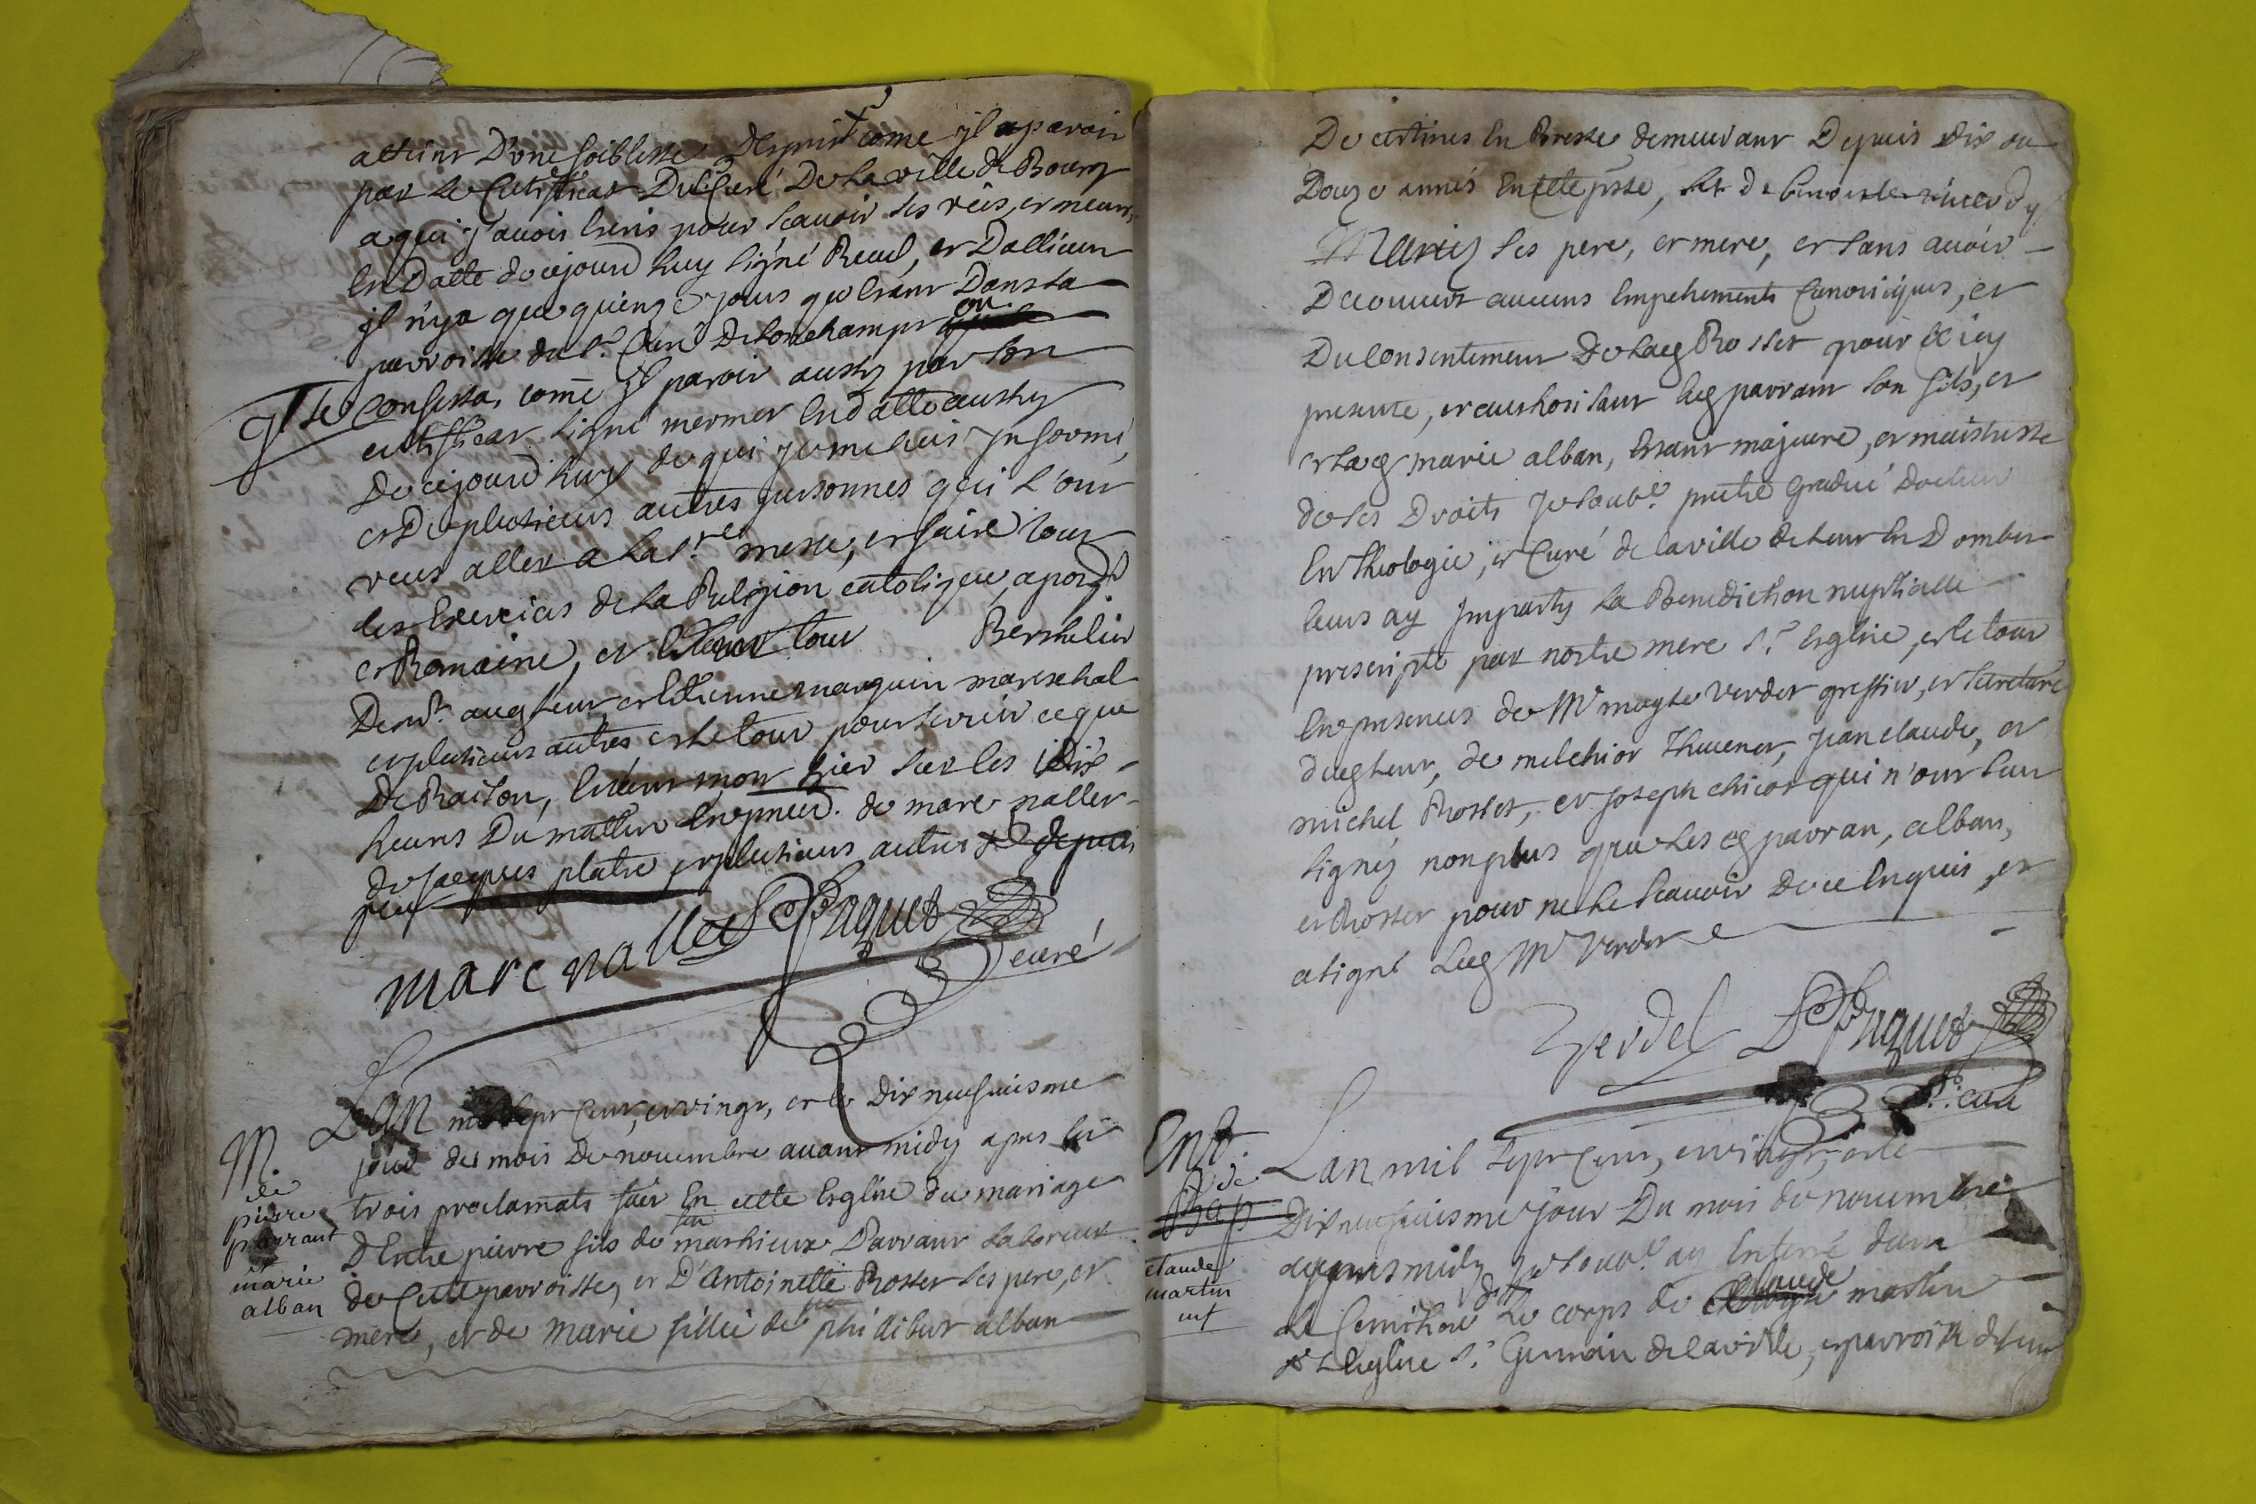 atteint D'une foiblesse Desprit come jl aparoit
par le Certificat Du Sr Curé De la ville de Bourg
a qui j'avois Ecris pour scavoir
En Datte de cejourd huy signé Reud, et Dallieur
jl n'ya que quinze jours qu'Etant Dans la
parroisse du Sr Curé De Lonchamps ou
jl se confessa, come jl paroit aussy par son
certifficat signé mermet En datte aussy
De cejourd huy de qui je me suis jnformé,
et De plusieurs autres personnes qui l'ont
veus aller a la Ste messe, et faire tout
les Exercices de la Religion catolique, apostq
et Romaine, et le tout Berthelier
De mr augteur et Estienne manguin mareschal
et plusieurs autres et le tour pour servir ce que
De Raison, Estant mort hier sur les Dix
heures Du mattin En presed. de marc nallet
de jacques platre et plusieurs autres
marc nallet Paquet
curé
M.
de
pierre
parraut
marie
alban
L'an mil sept Cent, et vingt, et le Dix neufuiesme
jour du mois De nouembre auant midy apres les
trois proclamats fait En cette Esglise du mariage
D'Entre pierre fils de fu mathieux Parraut Laboreur
de Cette parroisse, et D'Antoinette Rosset ses pere, et
mere, et de marie fillie de fu philibert alban
De certines En Bresse demeurant Depuis dix ou
Douze années En cette psse, et de
ses pere, et mere, et sans auoir
Decouuert aucuns Empechements Canoniques, et
Du Consentement De Lad Rosset pour ce icy
presente, et authorisant led parraut son fils, et
et lad marie alban, Estant majeure, et maistresse
de ses Droits je soubé prettre gradué Docteur
En Theologie, et Curé de la ville de Leur En Dombes
leurs ay jmparty La Benediction nuptialle
prescripte par nostre mere Ste Esglise, et le tout
En presences de Mr Verdet greffier, et secretaire
dudt Leur, de melchior Thuenet, jean claude, et
michel Rosset, et joseph chicot qui n'ont seu
signéz non plus que les d parraut, alban,
et Rosset pour ne le Scauoir De ce Enquis, et
a signé Led Mr Verdet
Verdet Paquet
curé
Ent.
de
Bap
claude
martin
ent
L'an mil sept Cent, et vingt, et le
Dix neufuiesme jour Du mois de nouembre
apres midy je soubé ay Enterré dans
le Cemittiere le corps de claude martin
de L'Eglise St Germain de la ville, et parroisse de Leur